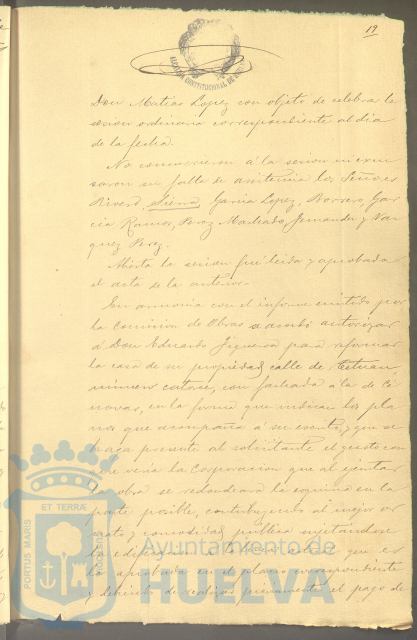 19
ALCALDIA CONSTITUCIONAL DE
Don Matias Lopez con objeto de celebrar la
sesion ordinaria correspondiente al dia
de la fecha.
No concurrieron á la sesion ni excu
saron su falta de asistencia los Señores
Rivero, Garcia Lopez, Borrero, Gar
cia Ramos, Perez Machado, Fernandez y Vaz
quez Perez.
Abierta la sesion fué leida y aprobada
el acta de la anterior.
En armonia con el informe emitido por
la Comision de Obras se acordó autorizar
á Don Eduardo Figueroa para reformar
la casa de su propiedad calle de Tetuan,
número catorce, con fachada á la de Cá
novas, en la forma que indican los pla
nos que acompaña á su escrito, y que se
haga presente al solicitante el gusto con
que veria la Corporacion que al ejecutar
la obra se redondeara la esquina en la
parte posible, contribuyendo al mejor or
nato y comodidad publica sujetandose
la edificacion á la linea que es
la aprobada en el plano correspondiente
y debiendo realizar previamente el pago de
PORTUS MARIS
ET TERRAE
Ayuntamiento de
HUELVA